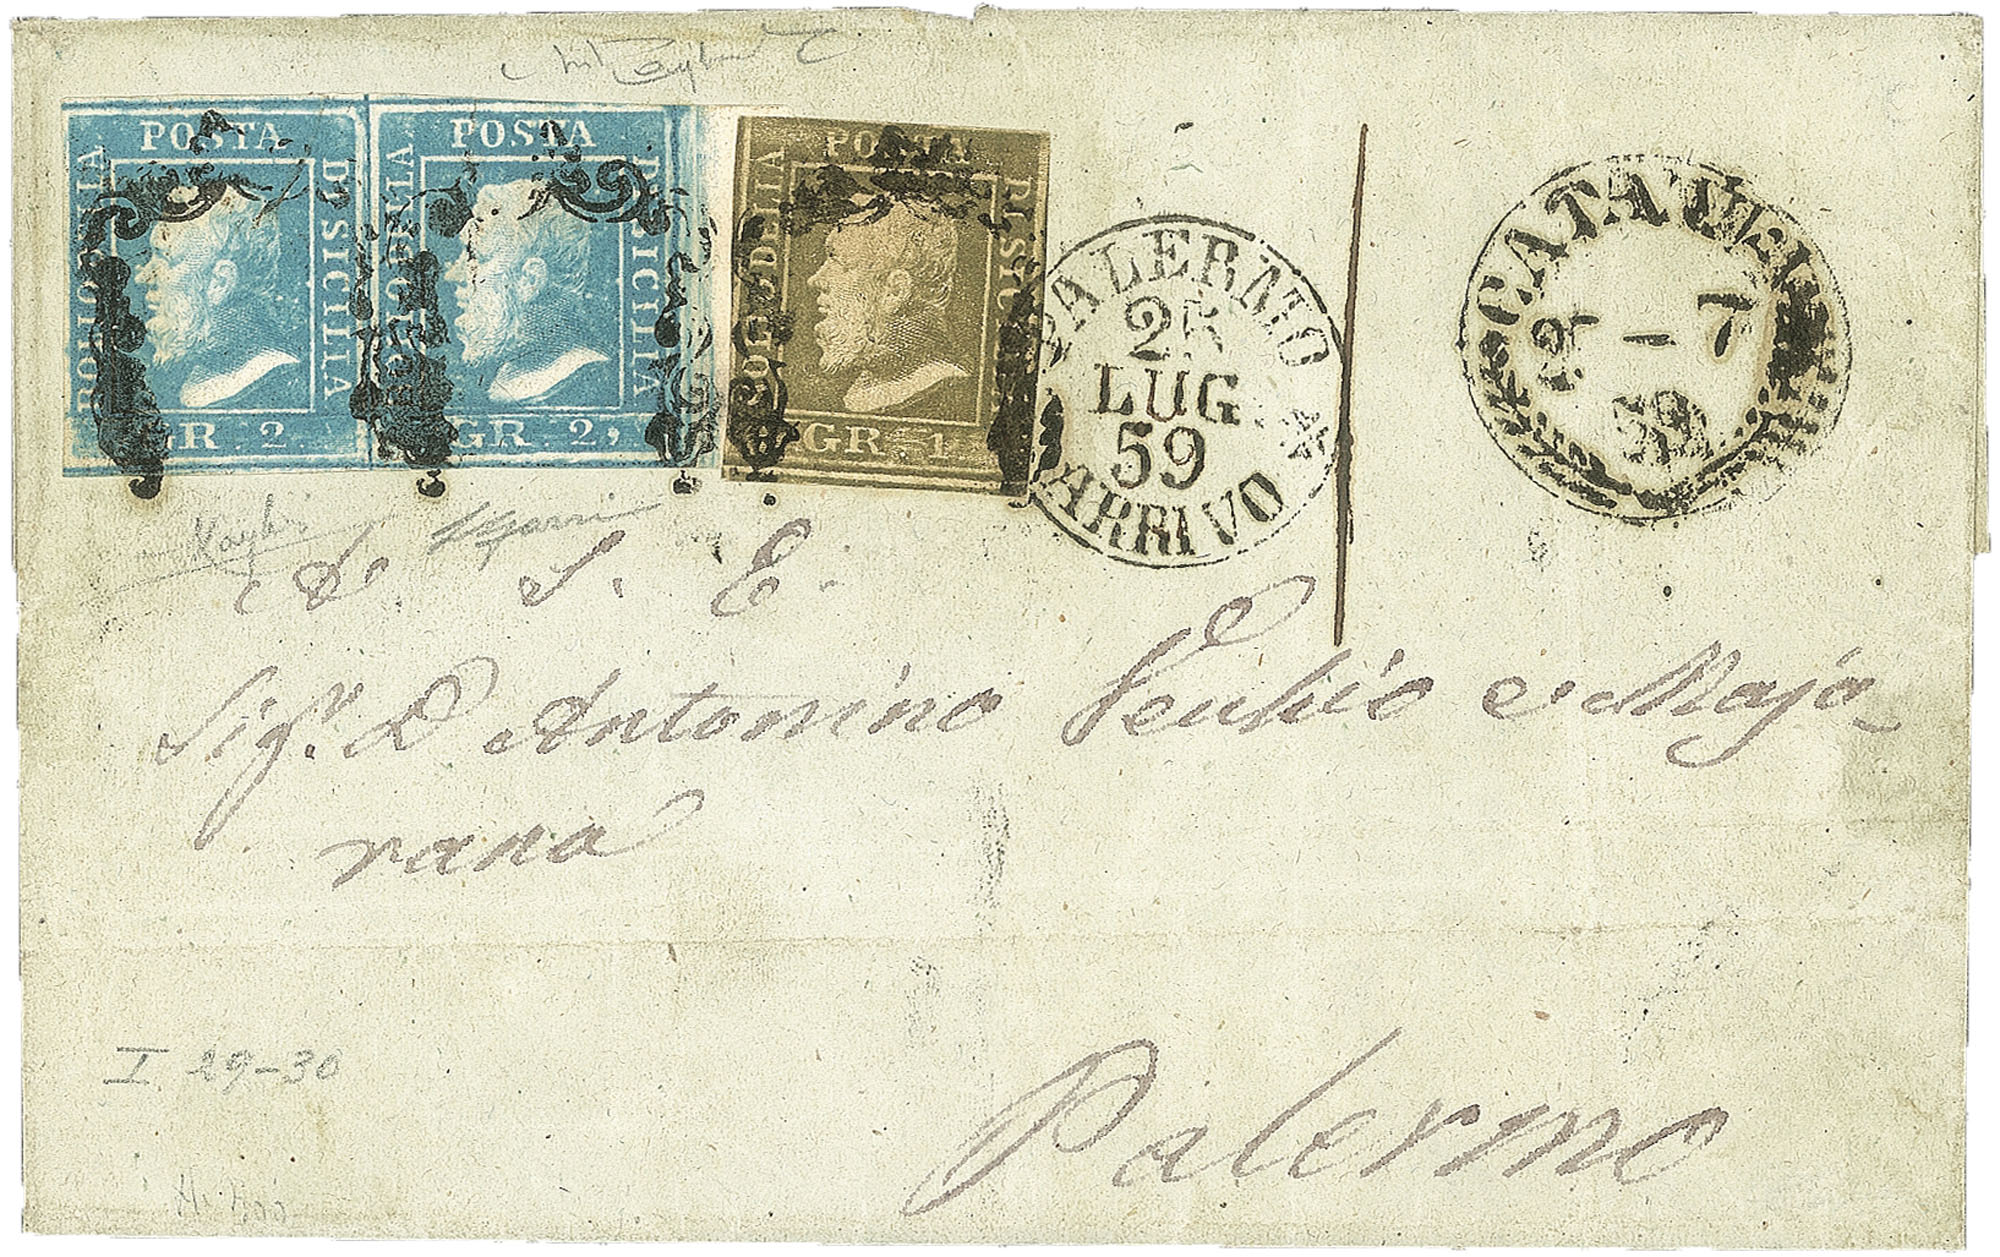 POSTA
BOLLO DELLA
DI SICILIA
GR. 2.
POSTA
BOLLO DELLA
DI SICILIA
GR. 2,
POSTA
BOLLO DELLA
DI SICILIA
GR. 1
PALERMO
LUG
59
ARRIVO
CATANIA
7
59
A. S. E.
Sig.r D Antonino e Maja
rana
Palermo
I 29-30